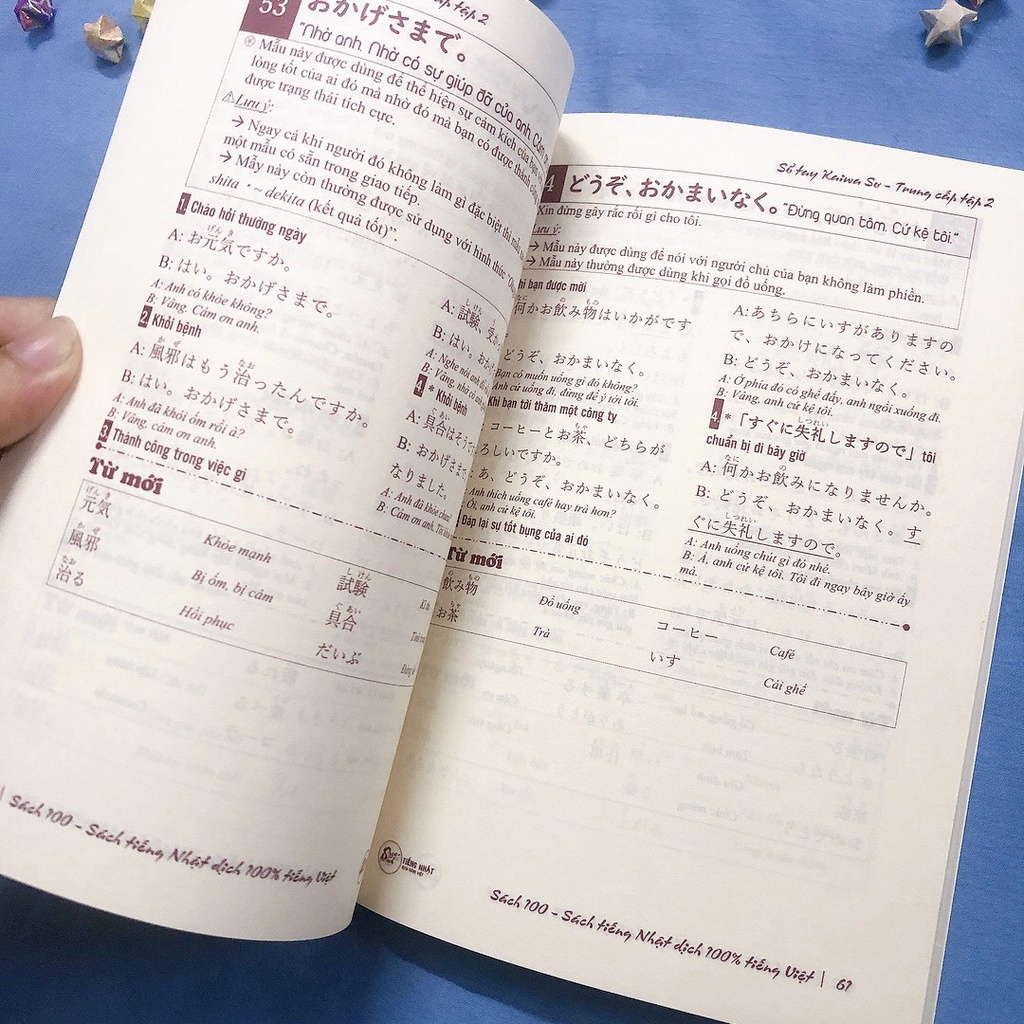 tập 2
53 おかげさまで。
"Nhờ anh. Nhờ có sự giúp đỡ của anh. Cảm
Mẫu này được dùng để thể hiện sự cảm kích của bạn
lòng tốt của ai đó mà nhờ đó mà bạn có được thành
được trạng thái tích cực.
⚠Lưu ý:
→ Ngay cả khi người đó không làm gì đặc biệt thì mẫu
một mẫu có sẵn trong giao tiếp.
→ Mẫy này còn thường được sử dụng với hình thức
shita・~ dekita (kết quả tốt)”.
1 Chào hỏi thường ngày
A: お元気ですか。
B: はい。おかげさまで。
A: Anh có khỏe không?
B: Vâng. Cảm ơn anh.
2 Khỏi bệnh
A: 風邪はもう治ったんですか。
B: はい。おかげさまで。
A: Anh đã khỏi ốm rồi à?
B: Vâng, cảm ơn anh.
3 Thành công trong việc gì
A: 試験、受か
B: はい。おか
A: Nghe nói anh
B: Vâng, nhờ có
4 * Khỏi bệnh
A: 具合はそう
B: おかげさまで
なりました。
A: Anh đã khỏe chưa?
B: Cảm ơn anh. Tôi
Từ mới
元気 Khỏe mạnh 試験
風邪 Bị ốm, bị cảm 具合
治る Hồi phục だいぶ
Sách 100 - Sách tiếng Nhật dịch 100% tiếng Việt
Sổ tay Kaiwa Sơ - Trung cấp tập 2
4 どうぞ、おかまいなく。 "Đừng quan tâm. Cứ kệ tôi."
Xin đừng gây rắc rối gì cho tôi.
Lưu ý:
→ Mẫu này được dùng để nói với người chủ của bạn không làm phiền.
→ Mẫu này thường được dùng khi gọi đồ uống.
hi bạn được mời
何かお飲み物はいかがです
どうぞ、おかまいなく。
Bạn có muốn uống gì đó không?
Anh cứ uống đi, đừng để ý tới tôi.
Khi bạn tới thăm một công ty
コーヒーとお茶、どちらが
ろしいですか。
あ、どうぞ、おかまいなく。
Anh thích uống café hay trà hơn?
Ôi, anh cứ kệ tôi.
Đáp lại sự tốt bụng của ai đó
A: あちらにいすがありますの
で、おかけになってください。
B: どうぞ、おかまいなく。
A: Ở phía đó có ghế đấy, anh ngồi xuống đi.
B: Vâng, anh cứ kệ tôi.
4 *「すぐに失礼しますので」tôi
chuẩn bị đi bây giờ
A: 何かお飲みになりませんか。
B: どうぞ、おかまいなく。す
ぐに失礼しますので。
A: Anh uống chút gì đó nhé.
B: À, anh cứ kệ tôi. Tôi đi ngay bây giờ ấy
mà.
Từ mới
飲み物 Đồ uống コーヒー Café
お茶 Trà いす Cái ghế
TIẾNG NHẬT
Sách 100 - Sách tiếng Nhật dịch 100% tiếng Việt | 61